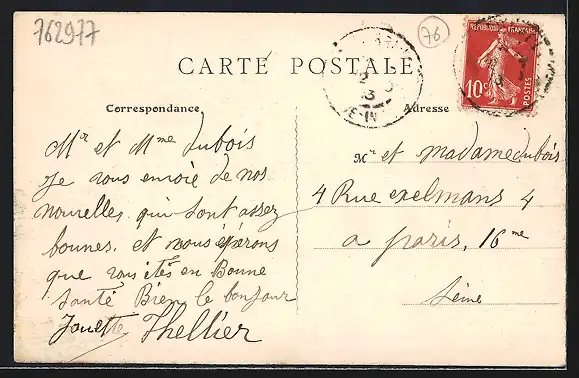 762977
76
CARTE POSTALE
RÉPUBLIQUE FRANÇAISE
10c
POSTES
Correspondance
Adresse
Mr et Mme dubois
Je vous envoie de nos
nouvelles, qui sont assez
bounes, et nous éspérons
que vous ités en Bonne
santé Bien le bonjour
Thellier
Mr et madame dubois
4 Rue exelmans 4
a paris, 16me
Seine